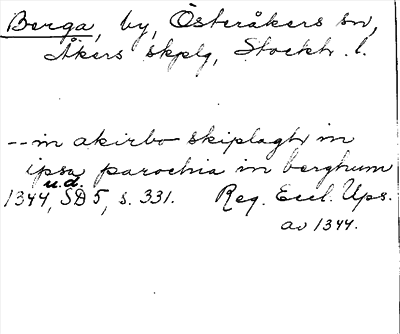 Berga, by, Österåkers sn,
Åkers skplg, Stockh. l.
-- in akirbo skiplagh in
ipsa parochia in berghum
u.d.
1344, SD 5, s. 331. Reg. Eccl. Ups.
av 1344.